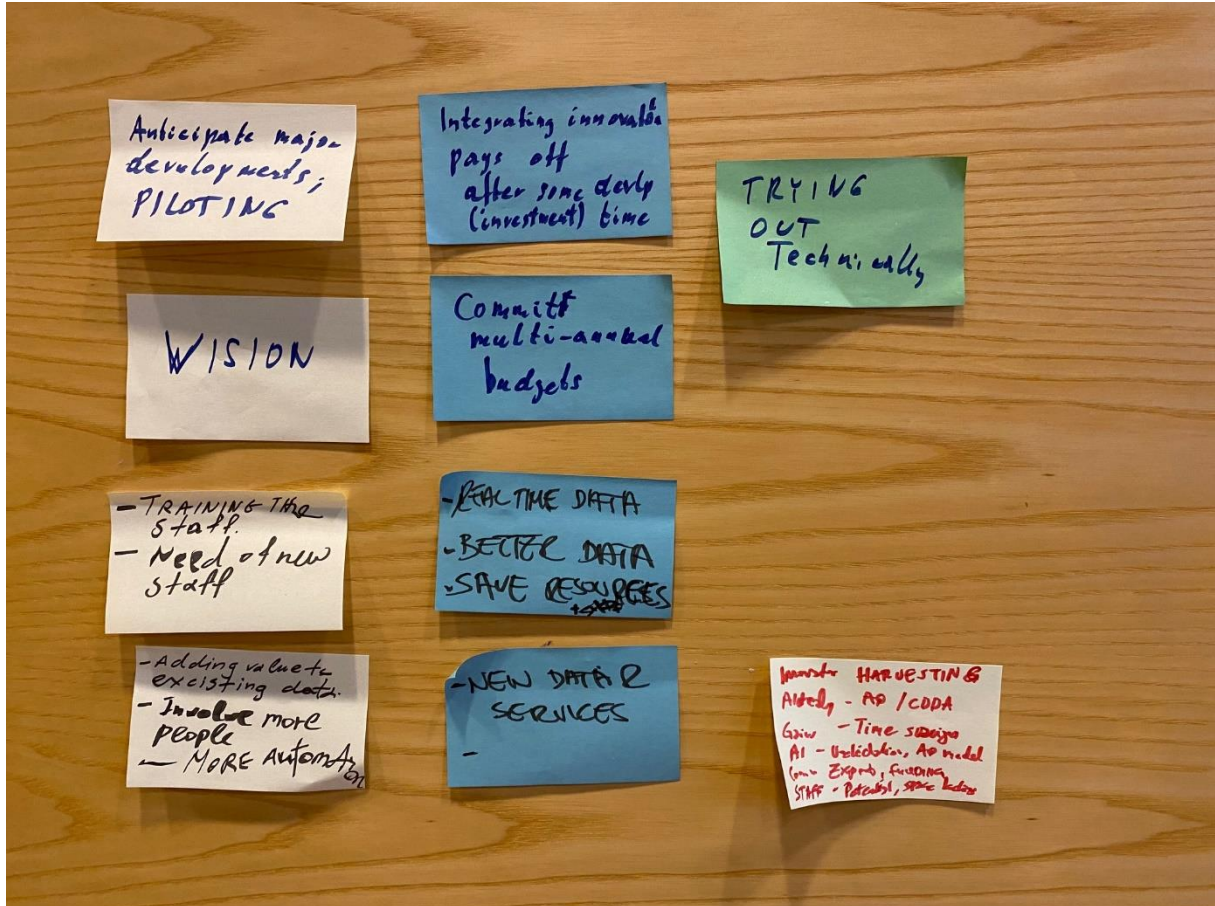 Anticipate major
developments;
PILOTING
WISION
- TRAINING THE
staff.
- Need of new
staff
- Adding value to
excisting data.
- Involve more
people
- MORE AUTOMATION
Integrating innovation
pays off
after some devlp
(investment) time
Committ
multi-annual
budgets
- REAL TIME DATA
- BETTER DATA
- SAVE RESOURCES
- NEW DATA &
SERVICES
-
TRYING
OUT
Technically
HARVESTING
Already - AQ / CDDA
Gain - Time savings
AI - Validation, AQ model
Experts, Funding
STAFF - Potential,